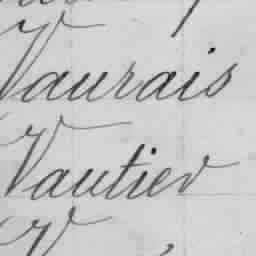 Vaurais
Vautier